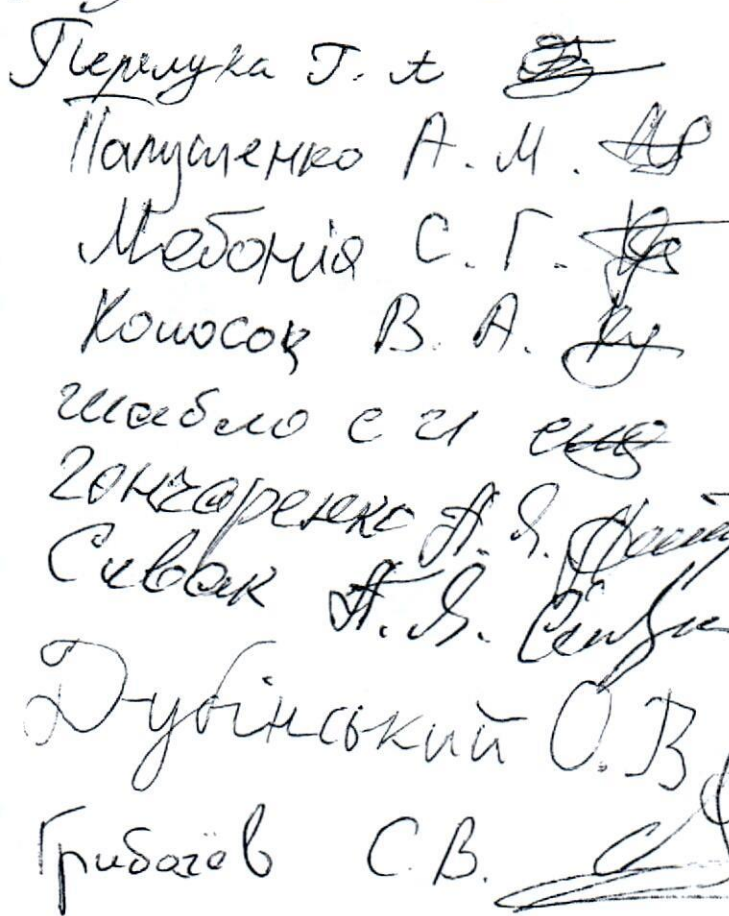 Перелука Г. А
Папушенко А. М.
Мебонія С. Г.
Колосок В. А.
шабло с и
Гончаренко А. Я.
Сивак А. Я.
Дубінський О. В
Грибачёв С. В.